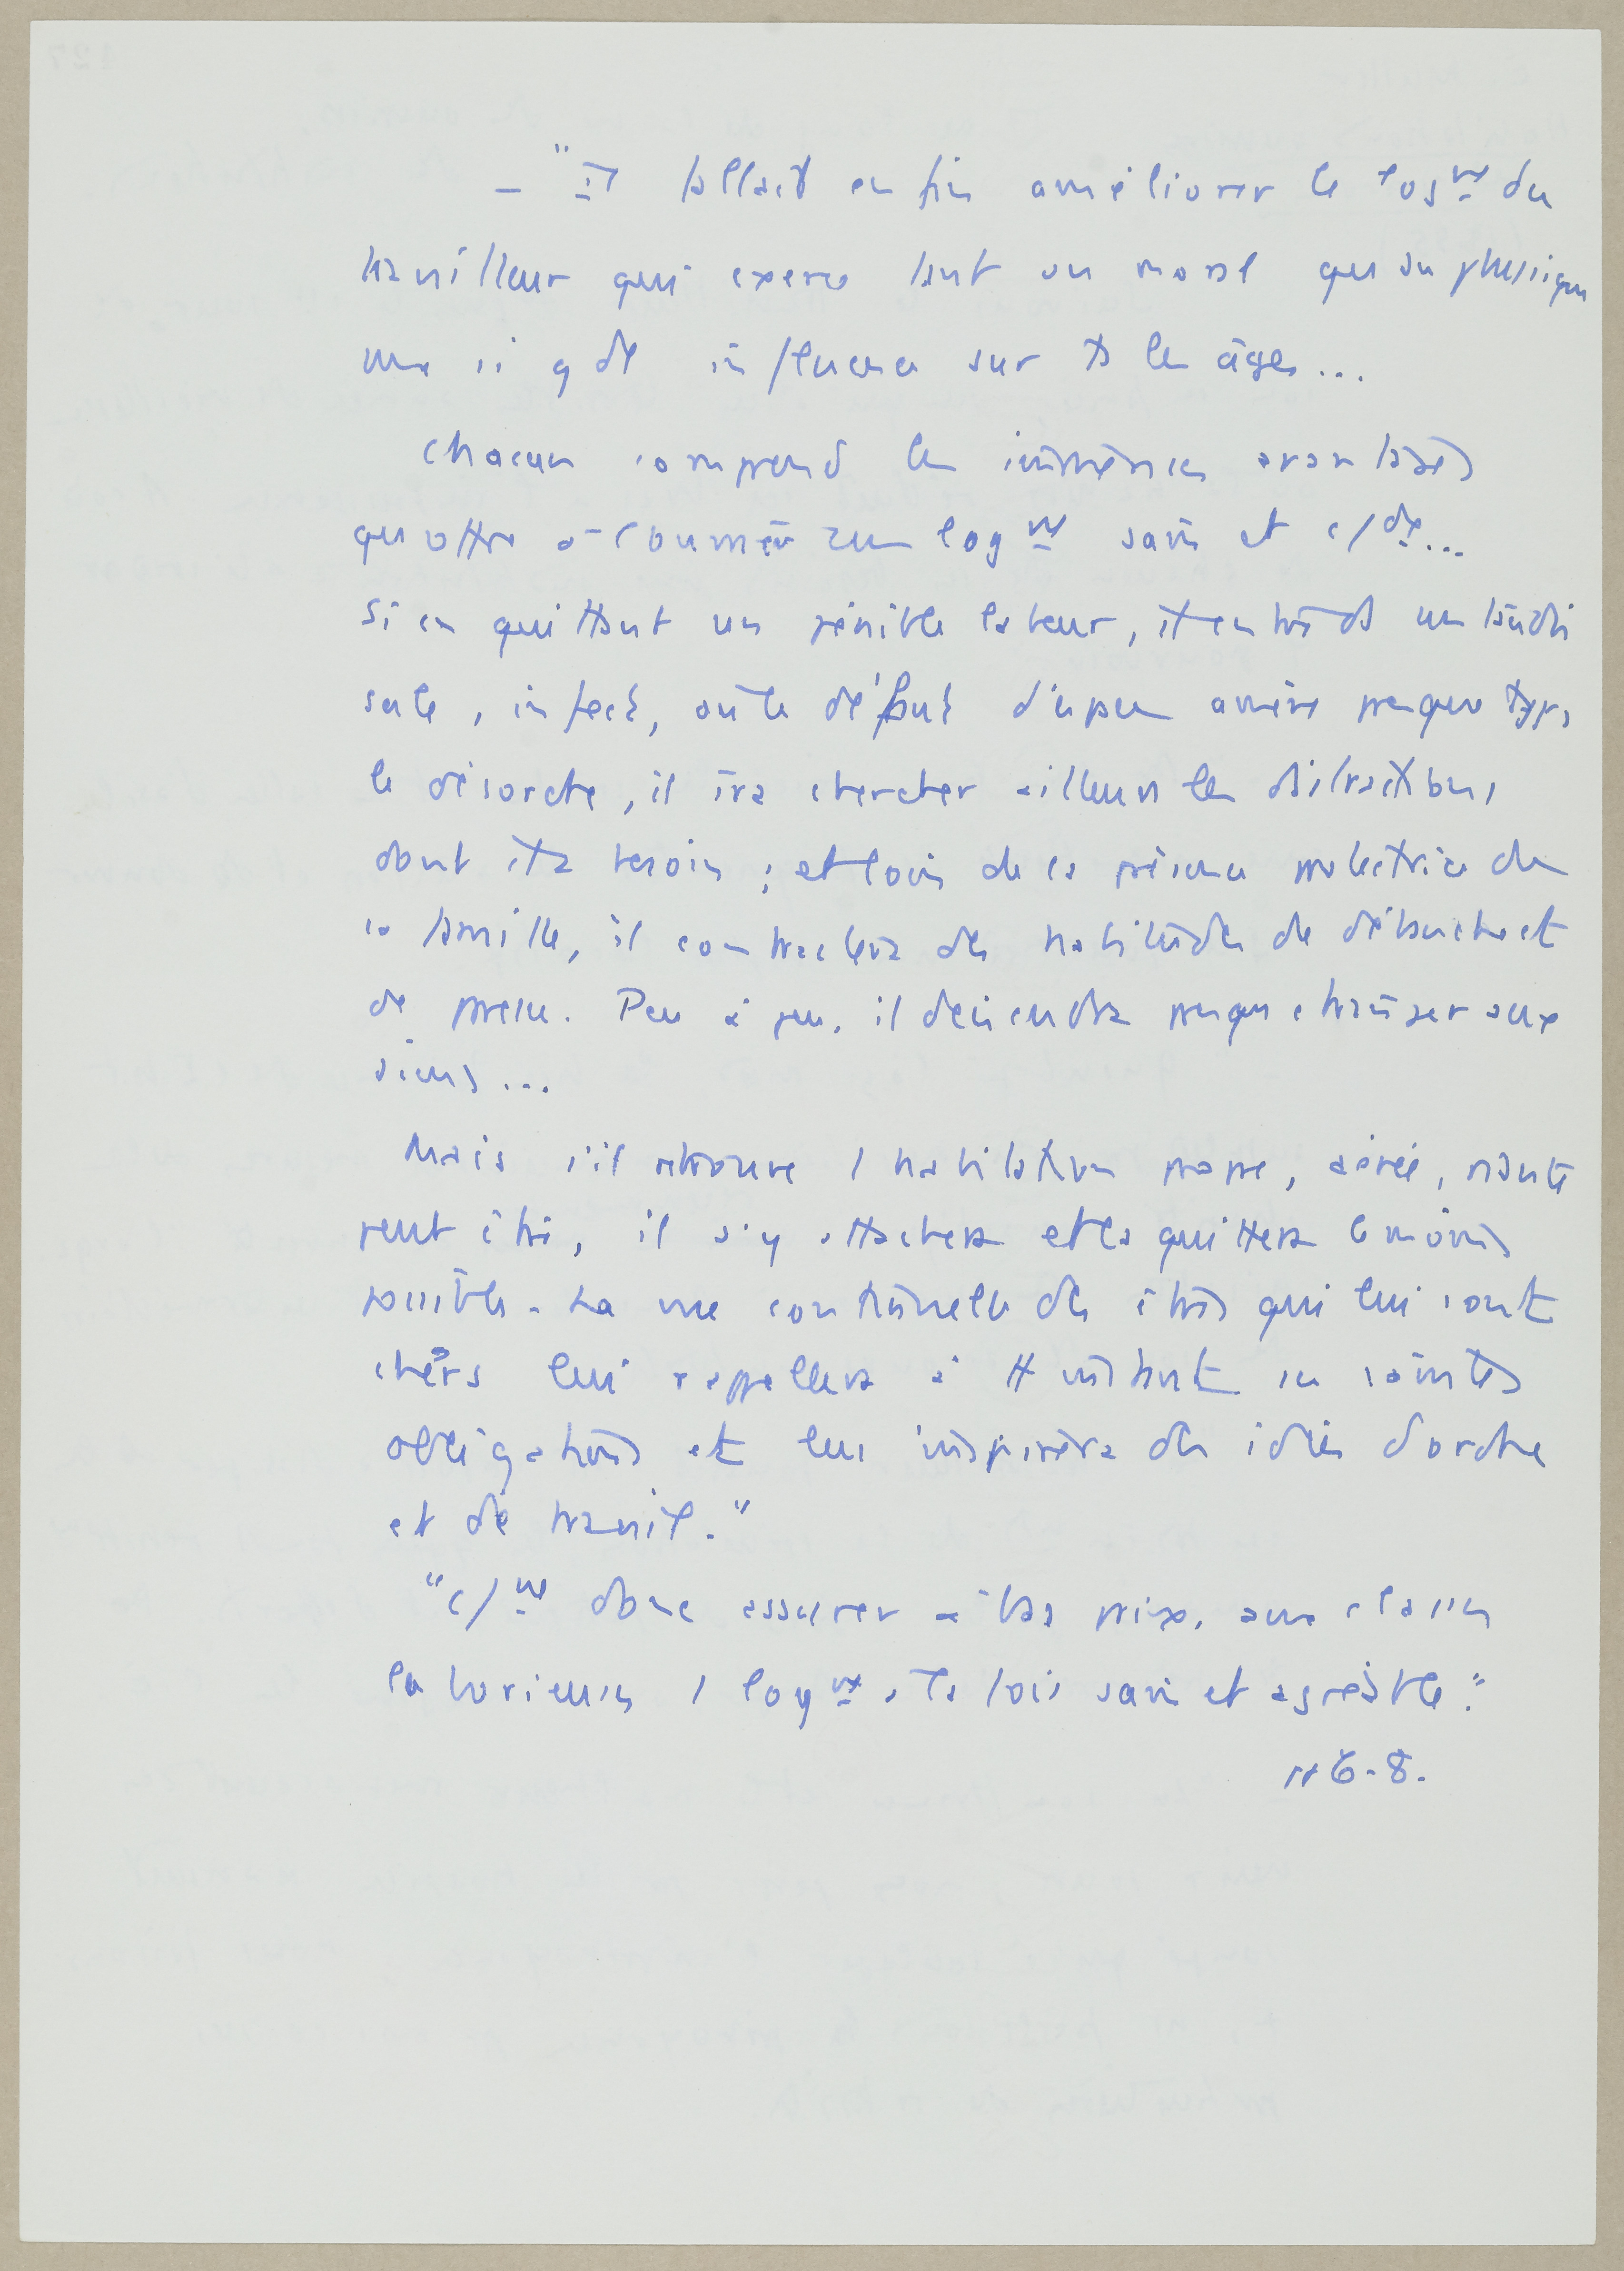 – "Il fallait enfin améliorer le logmt du
travailleur qui exerce tant au moral qu'au physique
une si gde influence sur ts les âges...
Chacun comprend les immenses avantages
qu'offre à l'ouvrier un logmt sain et c/de...
Si en quittant un pénible labeur, il entre ds un taudis
sale, infect, où le défaut d'espace amène presque tjrs
le désordre, il ira chercher ailleurs les distractions
dont il a besoin ; et loin de la présence protectrice de
la famille, il contractera des habitudes de débauche et
de paresse. Peu à peu, il deviendra presque étranger aux
siens...
Mais s'il retrouve 1 habitation propre, aérée,
peut être, il s'y attachera et la quittera le moins
possible. La vue continuelle des êtres qui lui sont
chers lui rappellera à tt instant ses saintes
obligations et lui inspirera des idées d'ordre
et de travail."
"c/mt donc assurer à bas prix, aux classes
laborieuses 1 logmt à la fois sain et agréable."
pp 6-8.